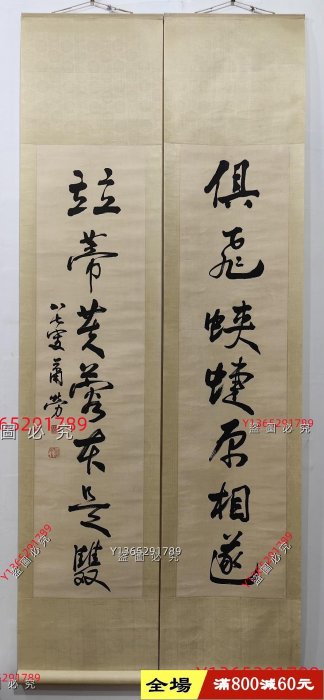 俱飛蛺蝶原相逐
竝蒂芙蓉本是雙
八七叟蕭勞
Y1365291789
盜圖必究
Y1365291789
盜圖必究
1365291789
圖必究
Y1365291789
盜圖必究
全場
滿800減60元